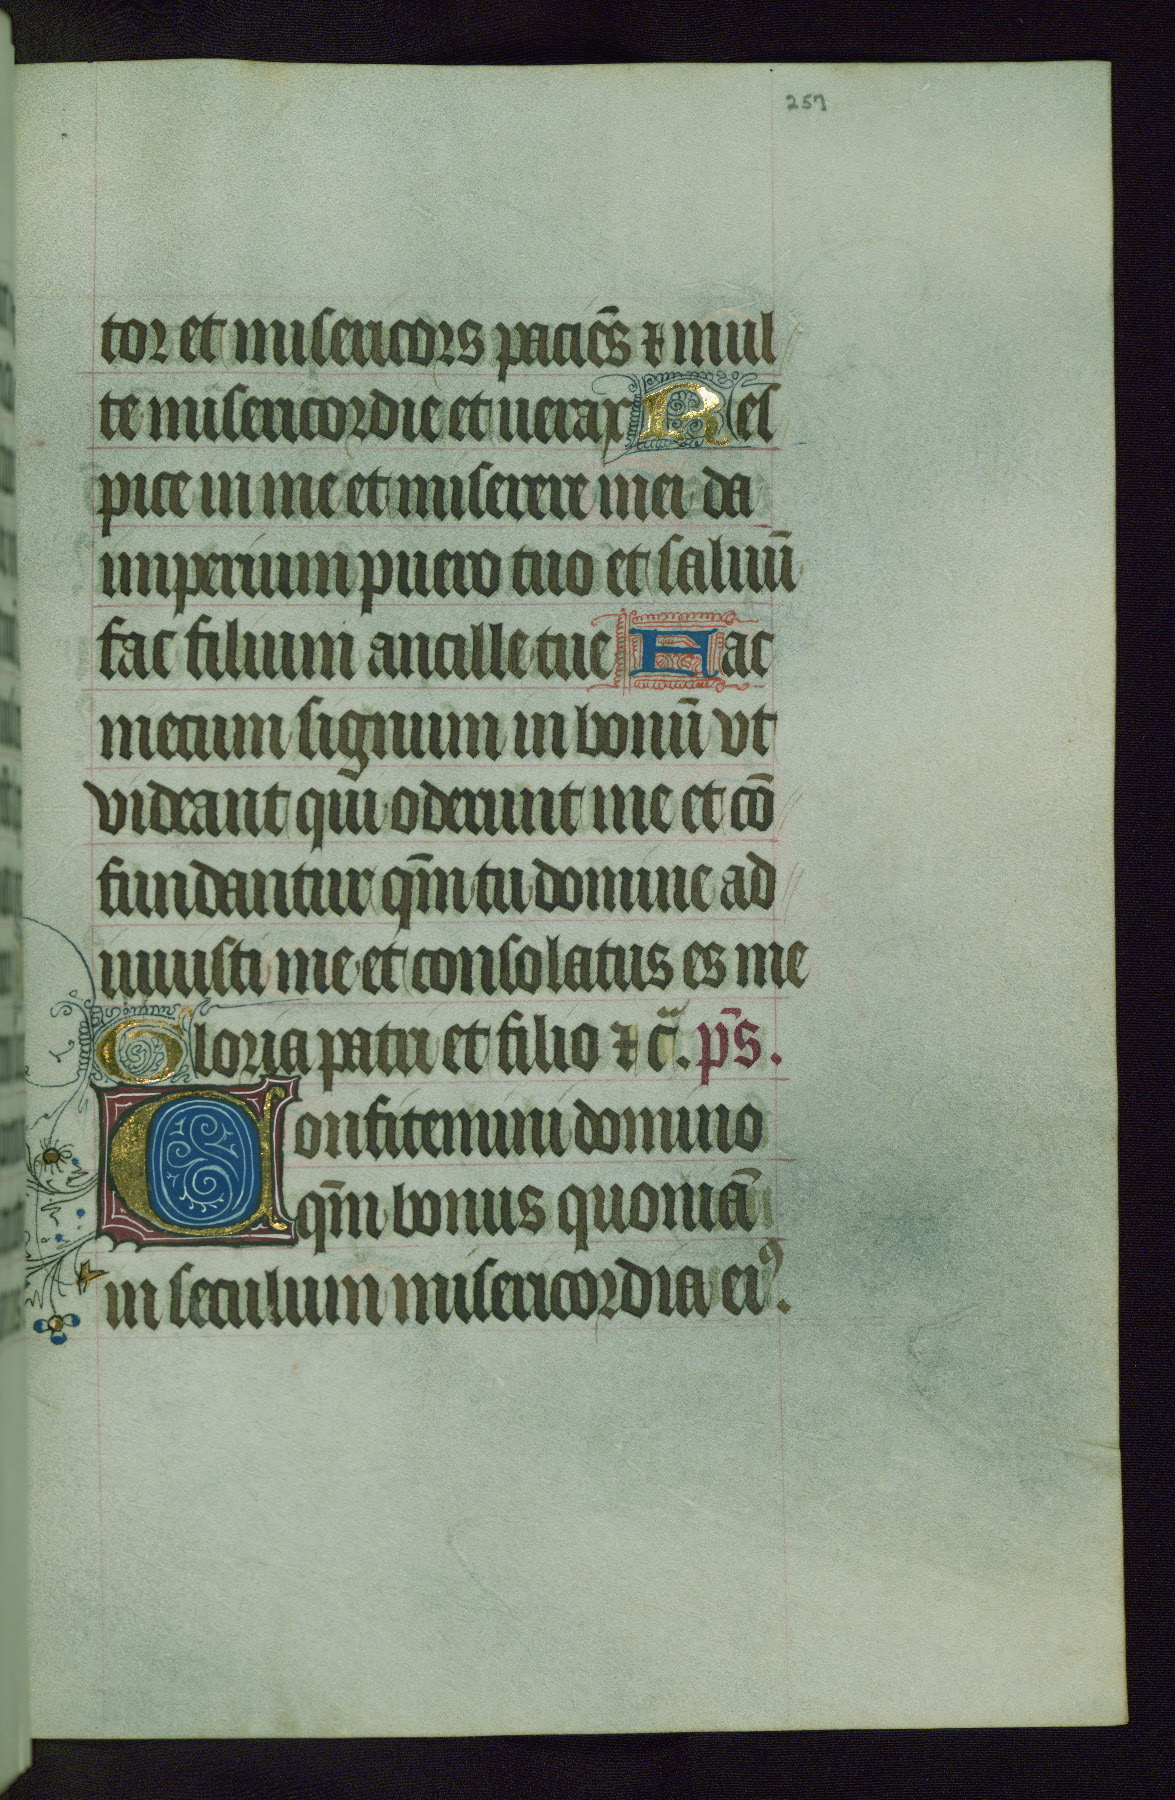 257
tor et misericors paciēs ⁊ mul
te misericordie et uerax Res
pice in me et miserere mei da
imperium puero tuo et saluū
fac filium ancille tue Fac
mecum signum in bonū vt
videant qui oderunt me et cō
fundantur qm̄ tu domine ad
iuuisti me et consolatus es me
Gloria patri et filio ⁊ c̄. ps̄.
Confitemini domino
qm̄ bonus quoniā
in seculum misericordia eiꝰ.